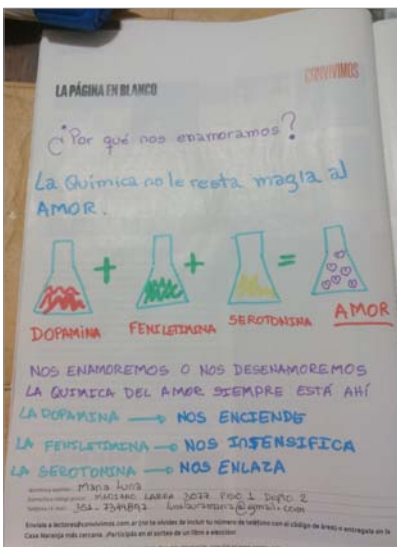 CONVIVIMOS
LA PÁGINA EN BLANCO
¿Por qué nos enamoramos?
La Química no le resta magia al
AMOR.
+ + =
DOPAMINA FENILETIMINA SEROTONINA AMOR
NOS ENAMOREMOS O NOS DESENAMOREMOS
LA QUIMICA DEL AMOR SIEMPRE ESTÁ AHÍ
LA DOPAMINA → NOS ENCIENDE
LA FENILETIMINA → NOS INSENSIFICA
LA SEROTONINA → NOS ENLAZA
Maria Luna
MARIANO LARRA 3077 Piso 1 Depto 2
Envíala a lectores@convivimos.com.ar (no te olvides de incluir tu número de teléfono con el código de área) o entregala en la
Casa Naranja más cercana. ¡Participás en el sorteo de un libro a elección!